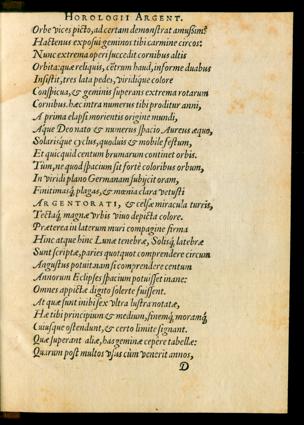 HOROLOGII ARGENT.
Orbe vices picto, ad certam demonstrat amussim:
Hactenus exposui geminos tibi carmine circos:
Nunc extrema operi succedit cornibus altis
Orbita: quæ reliquis, cetrum haud, informe duabus
Insistit, tres lata pedes, viridique colore
Conspicua, & geminis superans extrema rotarum
Cornibus. hæc intra numerus tibi proditur anni,
A prima elapsi morientis origine mundi,
Aque Deo nato & numerus spacio Aureus æquo,
Solarisque cyclus, quoduis & mobile festum,
Et quicquid centum brumarum continet orbis.
Tum, ne quod spacium sit forte coloribus orbum,
In viridi plano Germanam subijcit oram,
Finitimasq; plagas, & mœnia clara vetusti
ARGENTORATI, & celsæ miracula turris,
Tectaq; magnæ vrbis viuo depicta colore.
Præterea in laterum muri compagine firma
Hinc atque hinc Lunæ tenebræ, Solisq; latebræ
Sunt scriptæ, paries quotquot comprendere circum
Augustus potuit. nam si comprendere centum
Annorum Eclipses spacium potuisset inane:
Omnes appictæ digito solerte fuissent.
At quæ sunt inibi sex vltra lustra notatæ,
Hæ tibi principium & medium, finemq; moramq;
Cuiusque ostendunt, & certo limite signant.
Quæ superant aliæ, has geminæ cepere tabellæ:
Quarum post multos vsus cùm venerit annos,
D